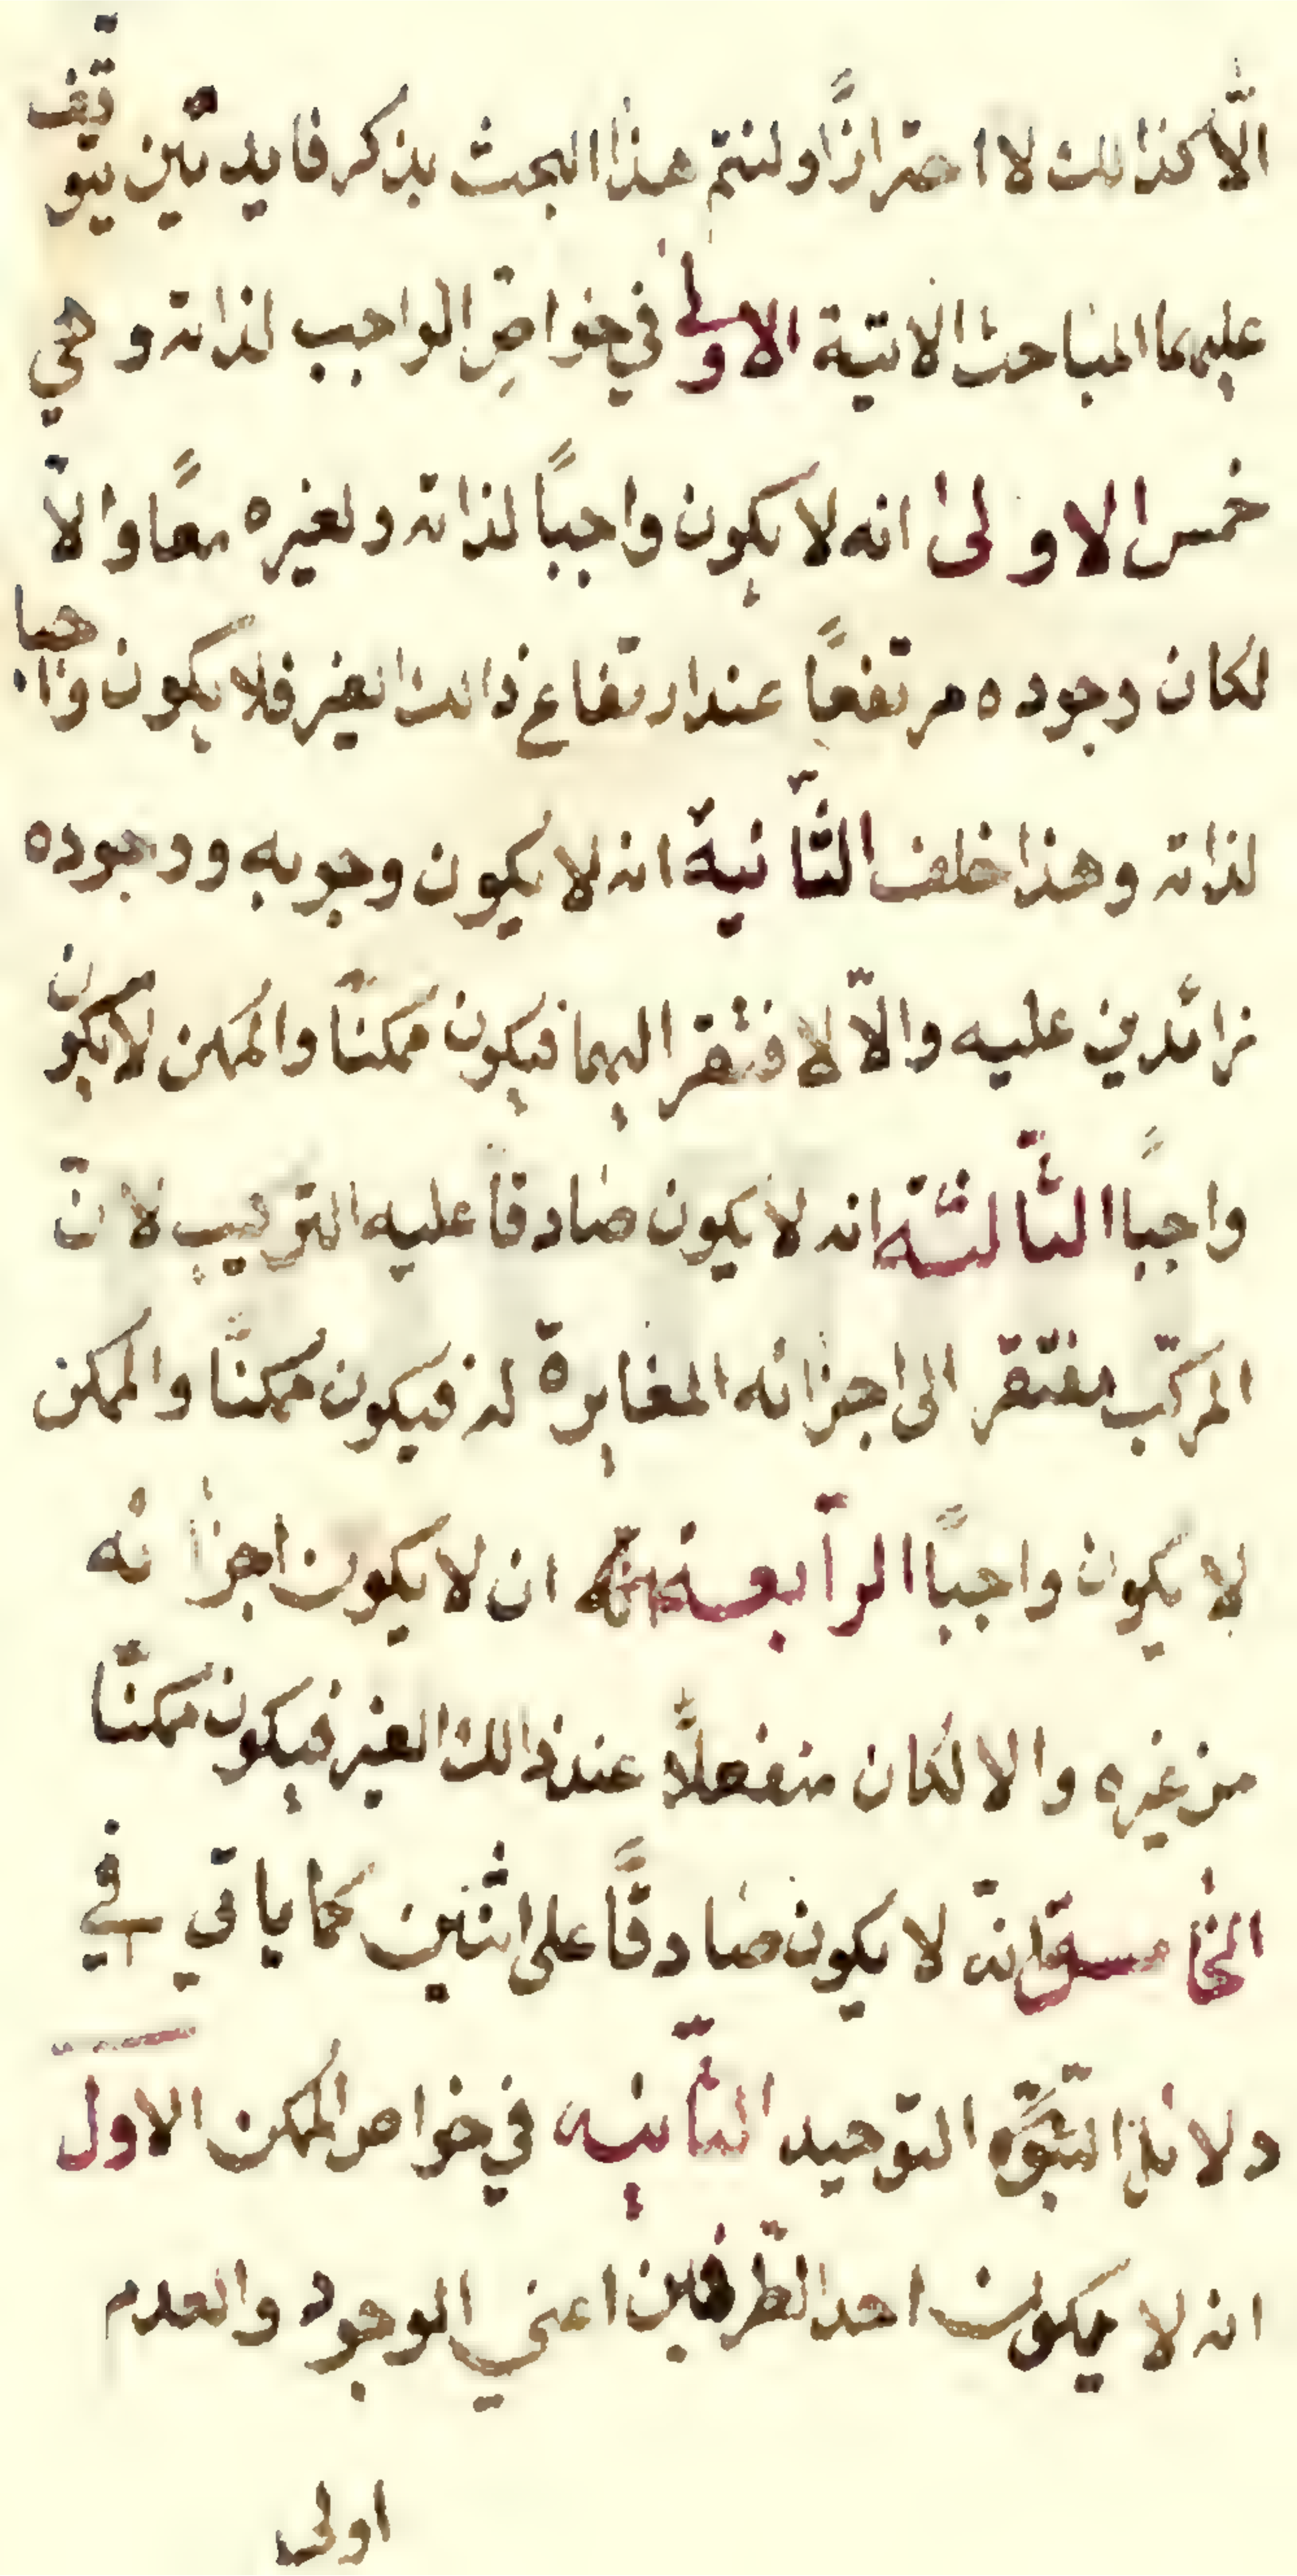 الّا كذالك لا احترازًا ولنتم هذا البحث بذكر فايدتين يتوقف
عليهما المباحث الاتية الاولى في خواصّ الواجب لذاته و هي
خمس الاولى انه لا يكون واجبًا لذاته ولغيره معًا والّا
لكان وجوده مرتفعًا عند ارتفاع ذالك الغير فلا يكون واجبا
لذاته وهذا خلف الثّانية انه لا يكون وجوبه ووجوده
زائدين عليه والّا لافتقر اليهما فيكون ممكنًا والممكن لا يكون
واجبًا الثّالثة انه لا يكون صادقا عليه التركيب لانّ
المركّب مفتقر الى اجزائه المغايرة له فيكون ممكنًا والممكن
لا يكون واجبًا الرّابعة انّه ان لا يكون اجزائه
من غيره والا لكان منفعلًا عند ذالك الغير فيكون ممكنّا
الخامسة انّه لا يكون صادقًا على اثنين كما ياتي في
دلائل التوحيد الثّانيه في خواص الممكن الاول
انه لا يكون احد الطّرفين اعني الوجود والعدم
اولى